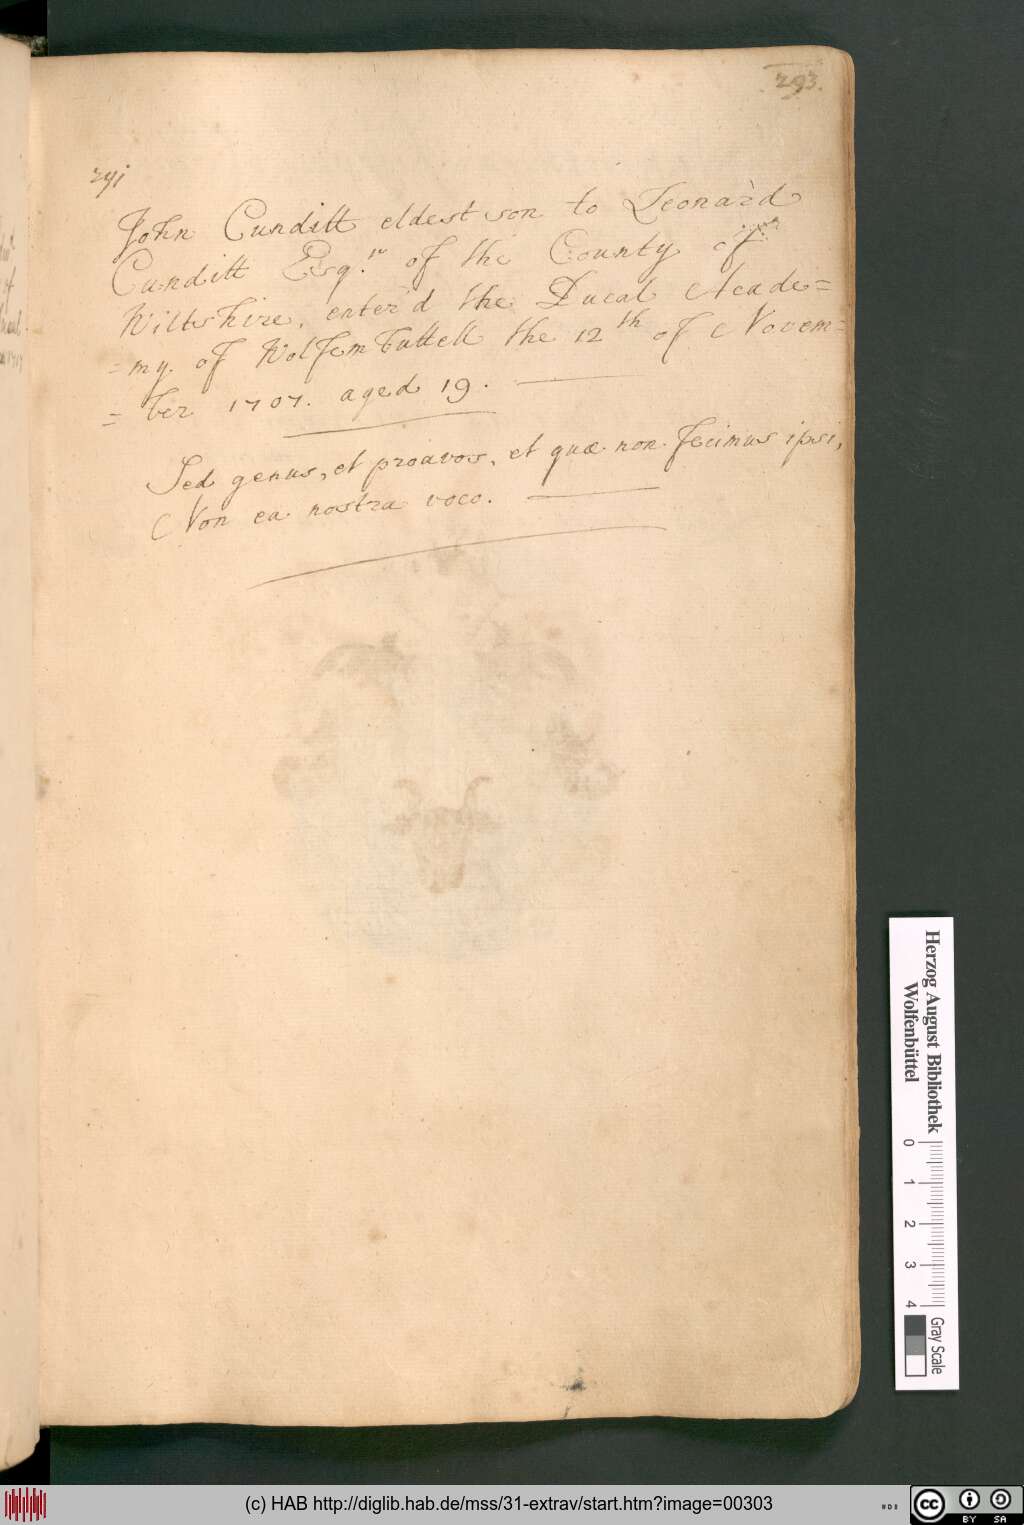 293.
291
John Cunditt eldest son to Leonard
Cunditt Esq.r of the County of
Wiltshire, enter'd the Ducal Acade=
=my. of Wolfembuttell the 12th of Novem=
=ber 1707. aged 19.
Sed genus, et proavos, et quæ non fecimus ipsi,
Non ea nostra voco.
Herzog August Bibliothek
Wolfenbüttel
0 1 2 3 4
Gray Scale
(c) HAB http://diglib.hab.de/mss/31-extrav/start.htm?image=00303
cc BY SA